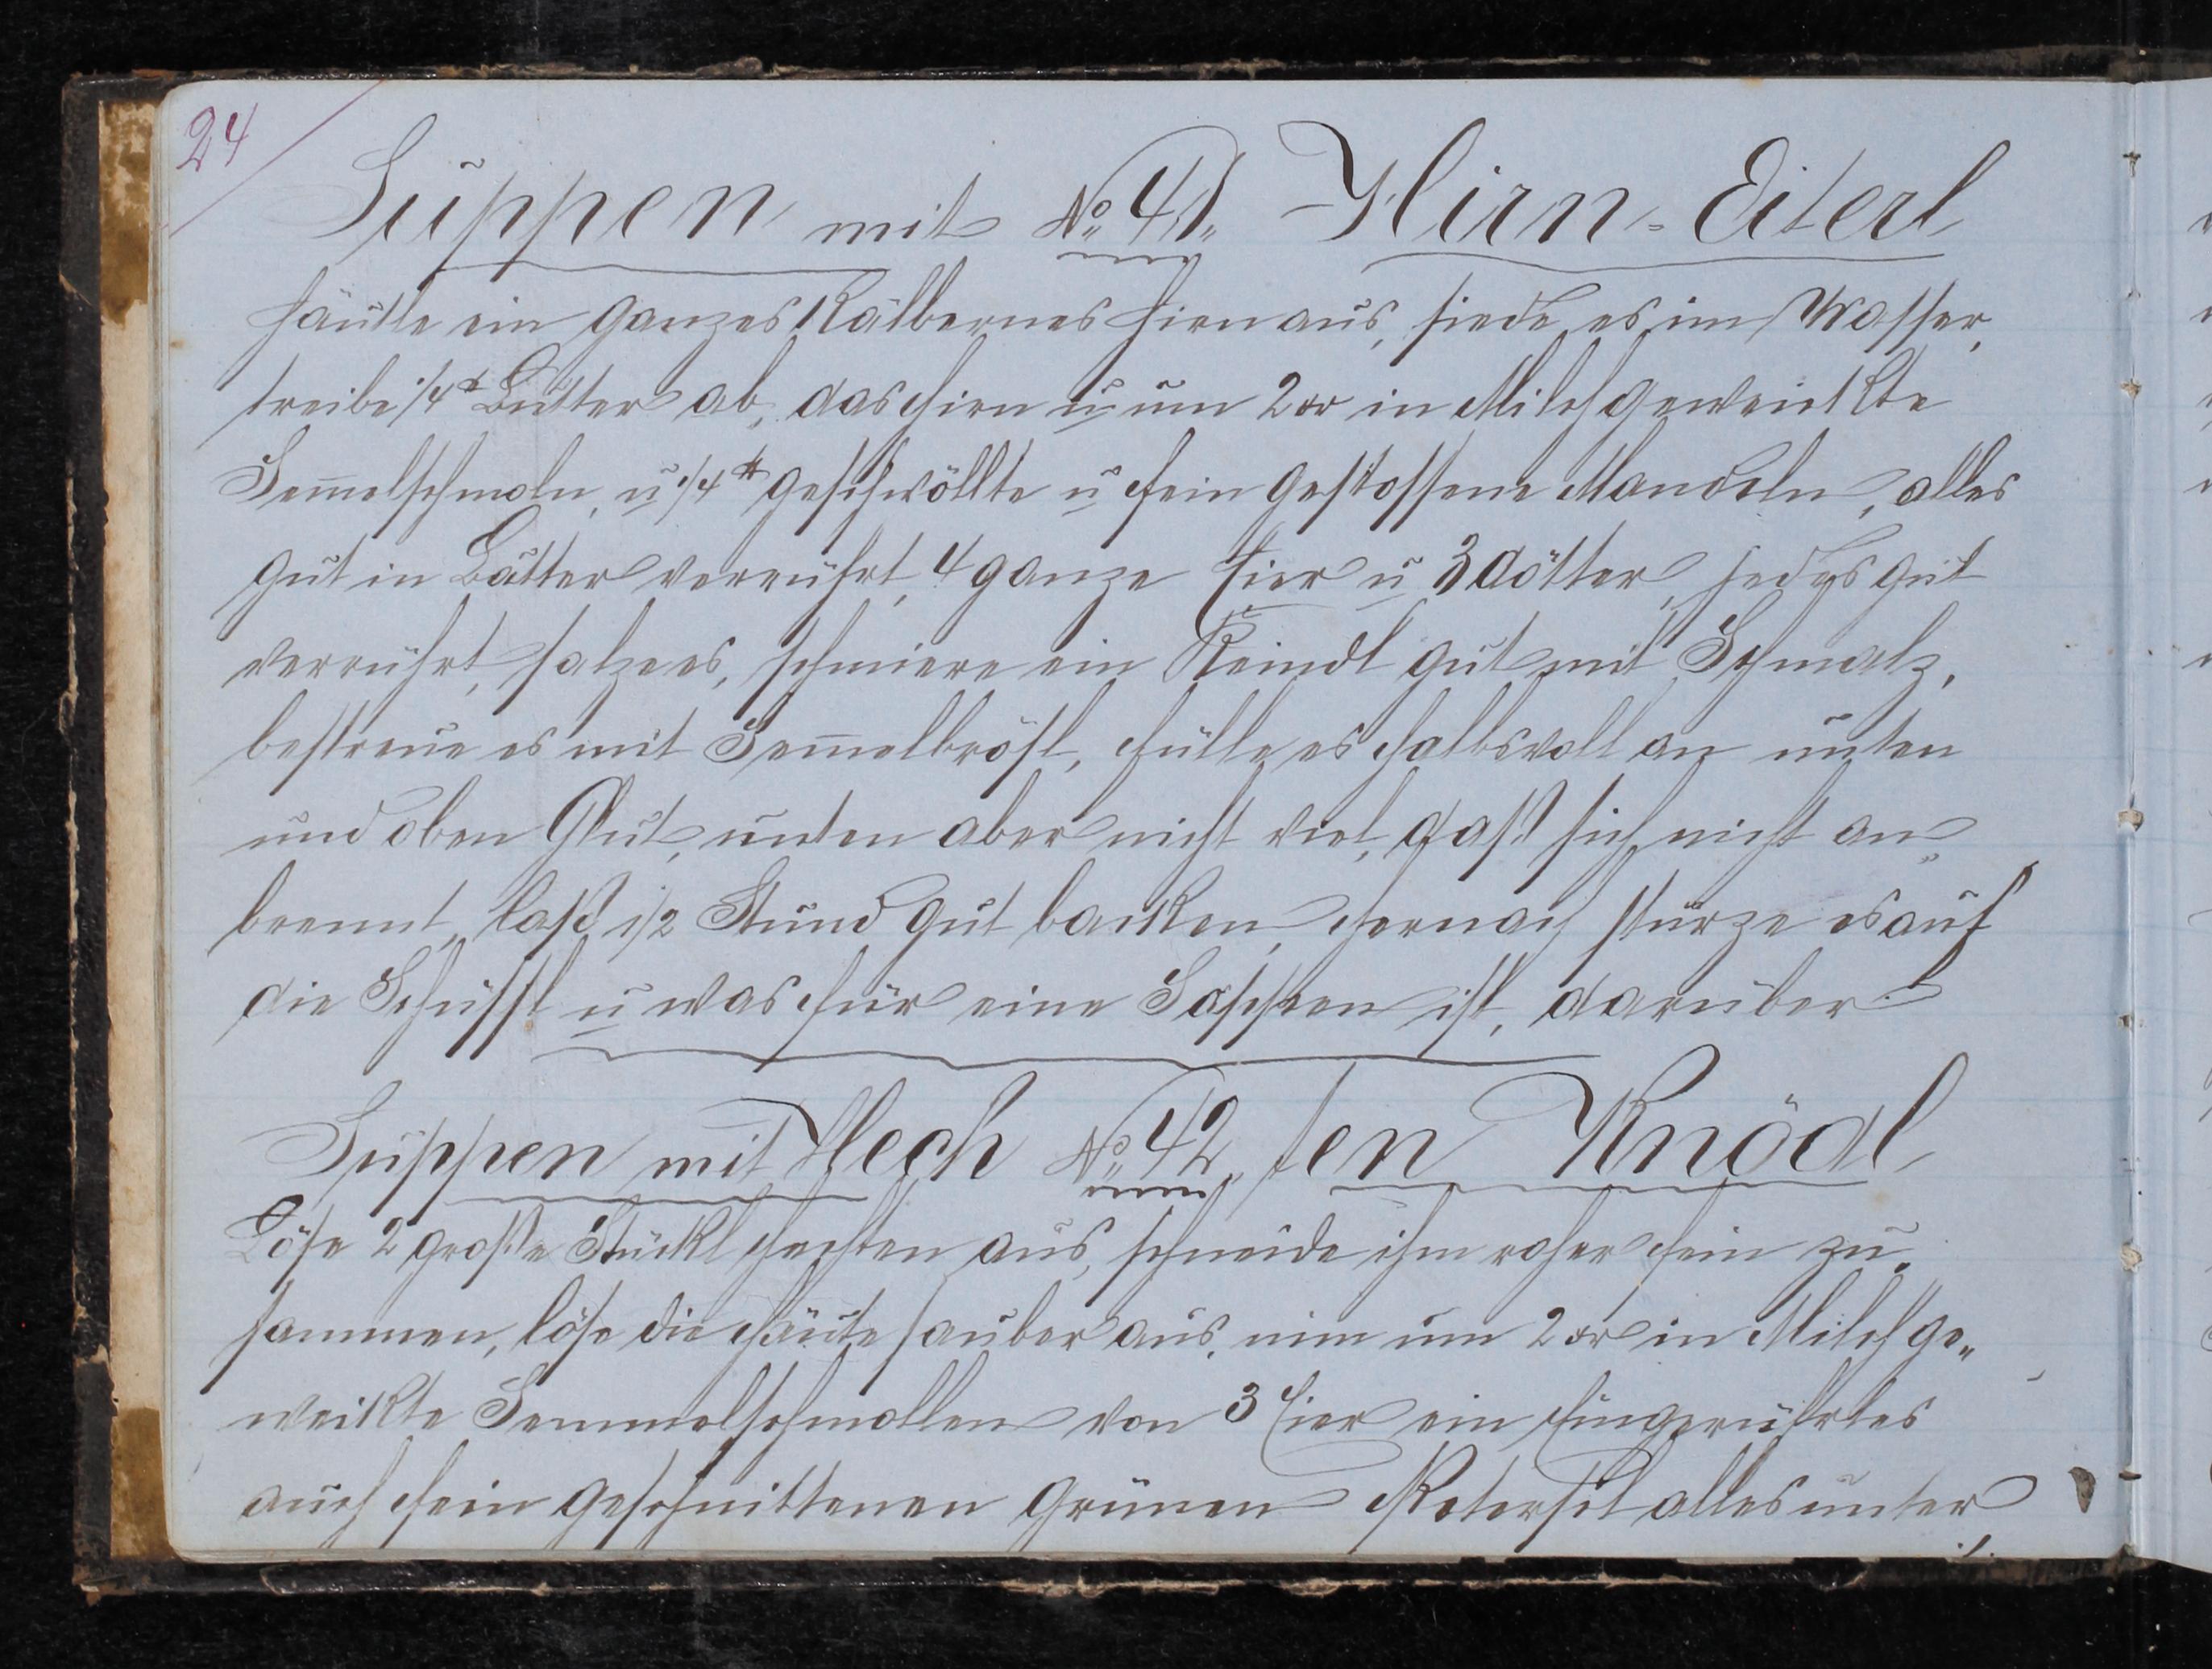 24
Suppen mit No. 41. Hirn-Eiterl
häutle ein ganzes Kälbernes Hirn aus, siede es im Wasser,
treibe 1/4 ℔ Butter ab, das Hirn u um 2 xr in Milch geweickte
Sem̄elschmoln, u 1/4 ℔ geschwöllte u fein gestossene Mandeln, alles
gut in Butter verrührt, 4 ganze Eier u 3 dötter, jedes gut
verrührt, salze es, schmiere ein Reindl gut mit Schmalz,
bestreue es mit Sem̄elbrösl, fülle es halbsvoll an unten
und oben Glut, unten aber nicht viel, daß sich nicht an„
brennt, laß 1/2 Stund gut backen, hernach stürze es auf
die Schüssl u was für eine Suppen ist, darüber
Suppen mit Hech No. 42 ten Knödl
Löse 2 große Stückl Hechten aus, schneide ihm roher fein zu„
sammen, löse die Häute sauber aus, nim um 2 xr in Milch ge„
weikte Semmelschmollen von 3 Eier ein Eingerührtes
auch fein geschnittenen grünen Petersil alles unter
./.